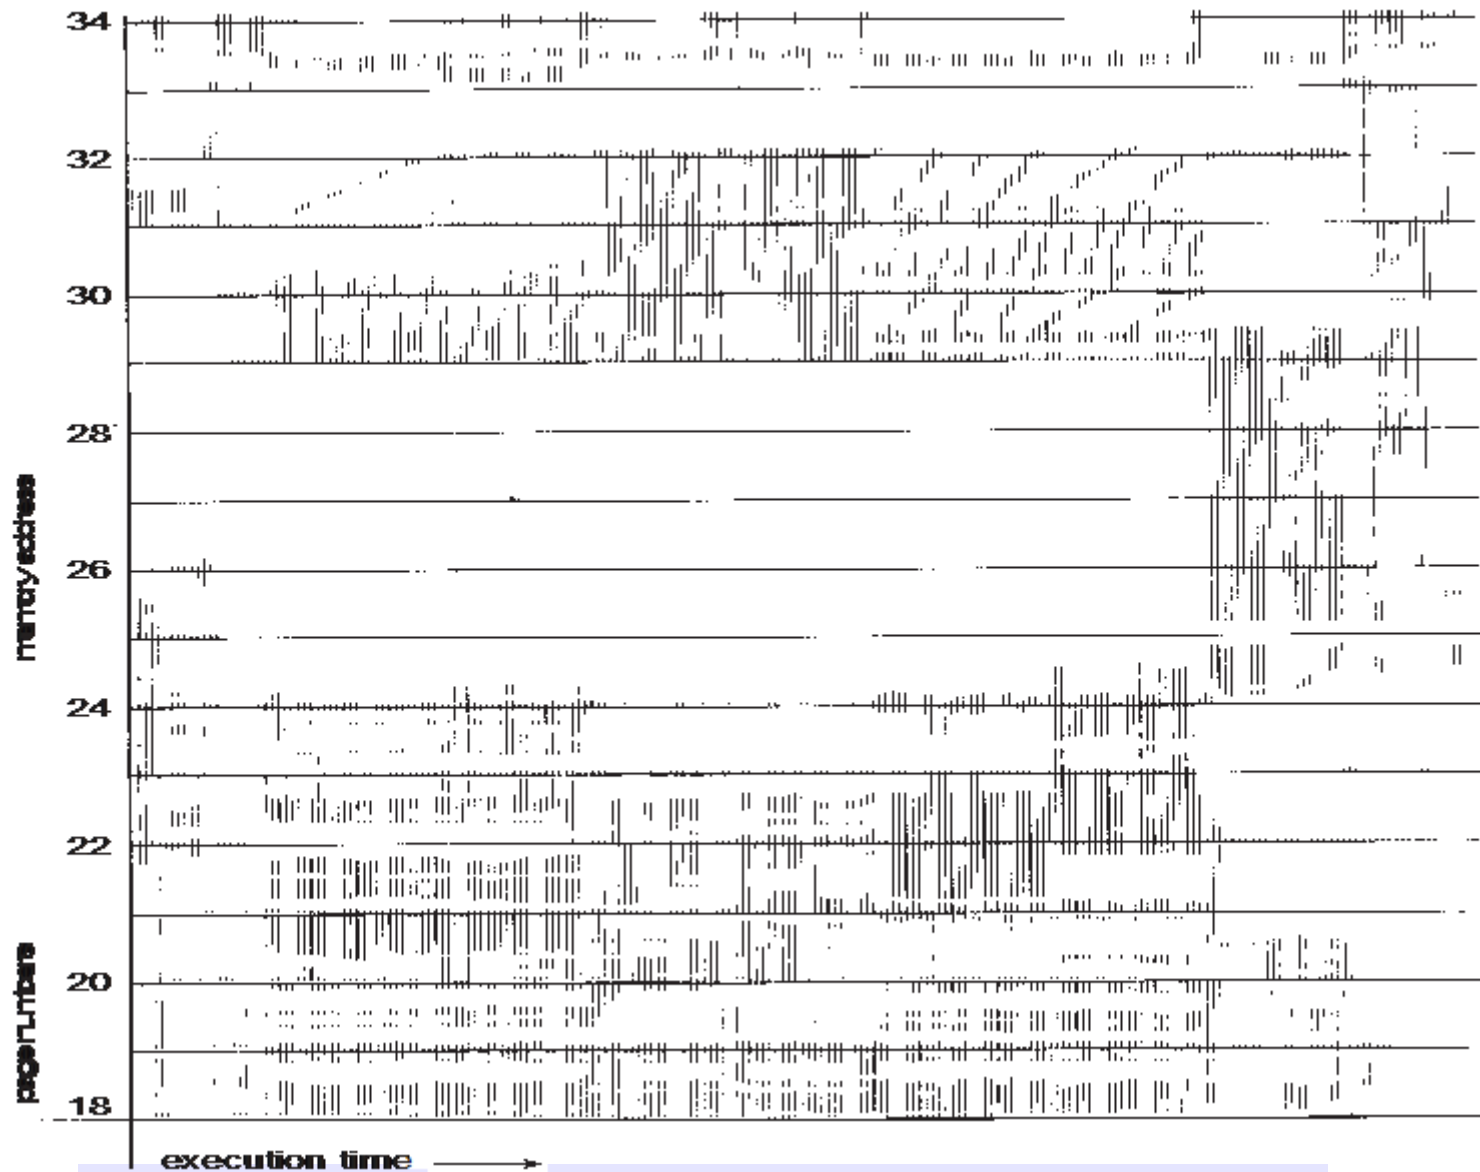 34
32
30
28
26
24
22
20
18
memory address
page numbers
execution time